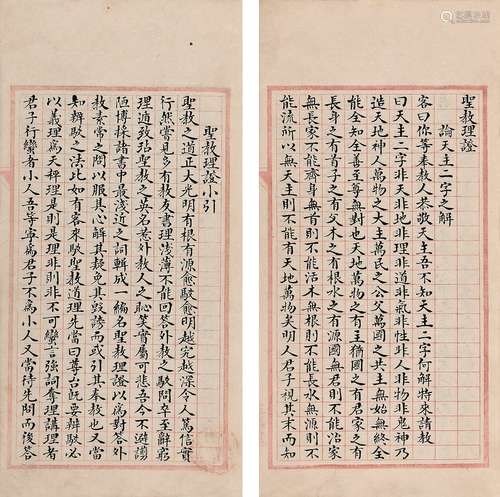 聖教理證
論天主二字之解
客曰你等奉教人恭敬天主吾不知天主二字何解特來請教
曰天主二字非天非地非理非道非氣非性非人非物非鬼神乃
造天地神人萬物之大主萬民之公父萬國之共主無始無終全
能全知全善至尊無對也天地萬物之有主猶國之有君家之有
長身之有首子之有父木之有根水之有源國無君則不能治家
無長家不能齊身無首則不能活木無根則不能長水無源則不
能流所以無天主則不能有天地萬物矣明人君子視其末而知
聖教理證小引
聖教之道正大光明有根有源愈駁愈明越究越深令人篤信實
行然常見多有教友書理淺薄不能回答外教之駁問卒至辭窮
理遁致玷聖教之英名惹外教人之恥笑實屬可悲吾今不避譾
陋博採諸書中最淺近之詞輯成一編名聖教理證以爲對答外
教素常之問以服其心解其疑免其毀謗而或引其奉教也又當
知辯駁之法比如有客來駁聖教道理先當曰尊台旣要辯駁必
以義理爲天秤理是則是理非則非不可蠻言強詞奪理講理者
君子行蠻者小人吾等寧爲君子不爲小人又當待先問而後答